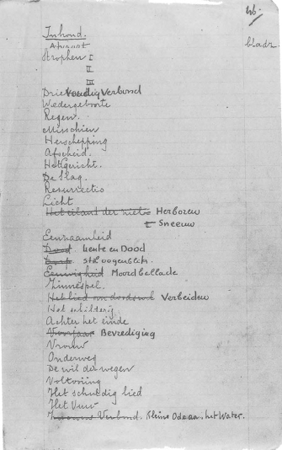 Inhoud.
bladz.
Afvaart
Strophen I
II
III
Drievoudig Verbond
Wedergeboorte
Regen
Misschien
Herschepping
Afscheid.
Het Gericht.
De slag.
Resurrectio
Licht
Het eiland der ziel Herboren
I Sneeuw
Eenzaamheid
Dood Lente en Dood
stil oogenblik
Eeuwigheid Moordballade
Zinnespel.
Verbeiden
Achter het einde
Voorjaar Bevrediging
Vrouw
Onderweg
De wil der wegen
Voltooiing
Het schuldig lied
Het Vuur
Verbond. Kleine Ode aan het Water.